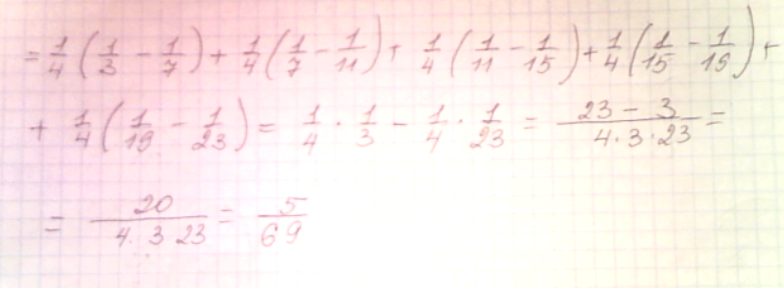 = 1/4 (1/3 - 1/7) + 1/4 (1/7 - 1/11) + 1/4 (1/11 - 1/15) + 1/4 (1/15 - 1/19) +
+ 1/4 (1/19 - 1/23) = 1/4 · 1/3 - 1/4 · 1/23 = (23 - 3)/(4 · 3 · 23) =
= 20/(4 · 3 23) = 5/69